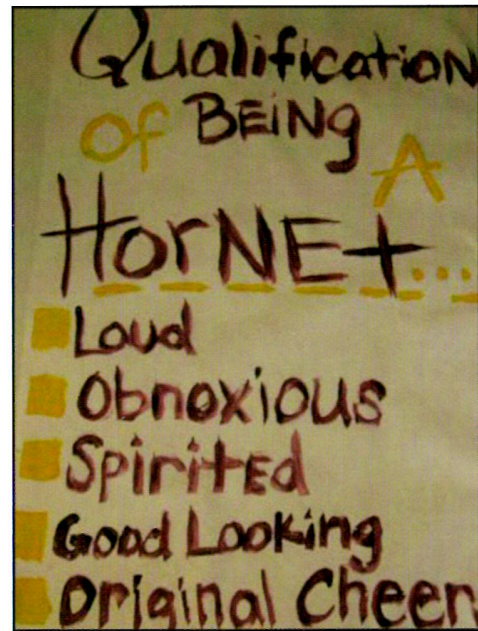 Qualification
of BEiNg
A
HorNEt...
Loud
Obnoxious
SpiritEd
Good Looking
Original Cheer